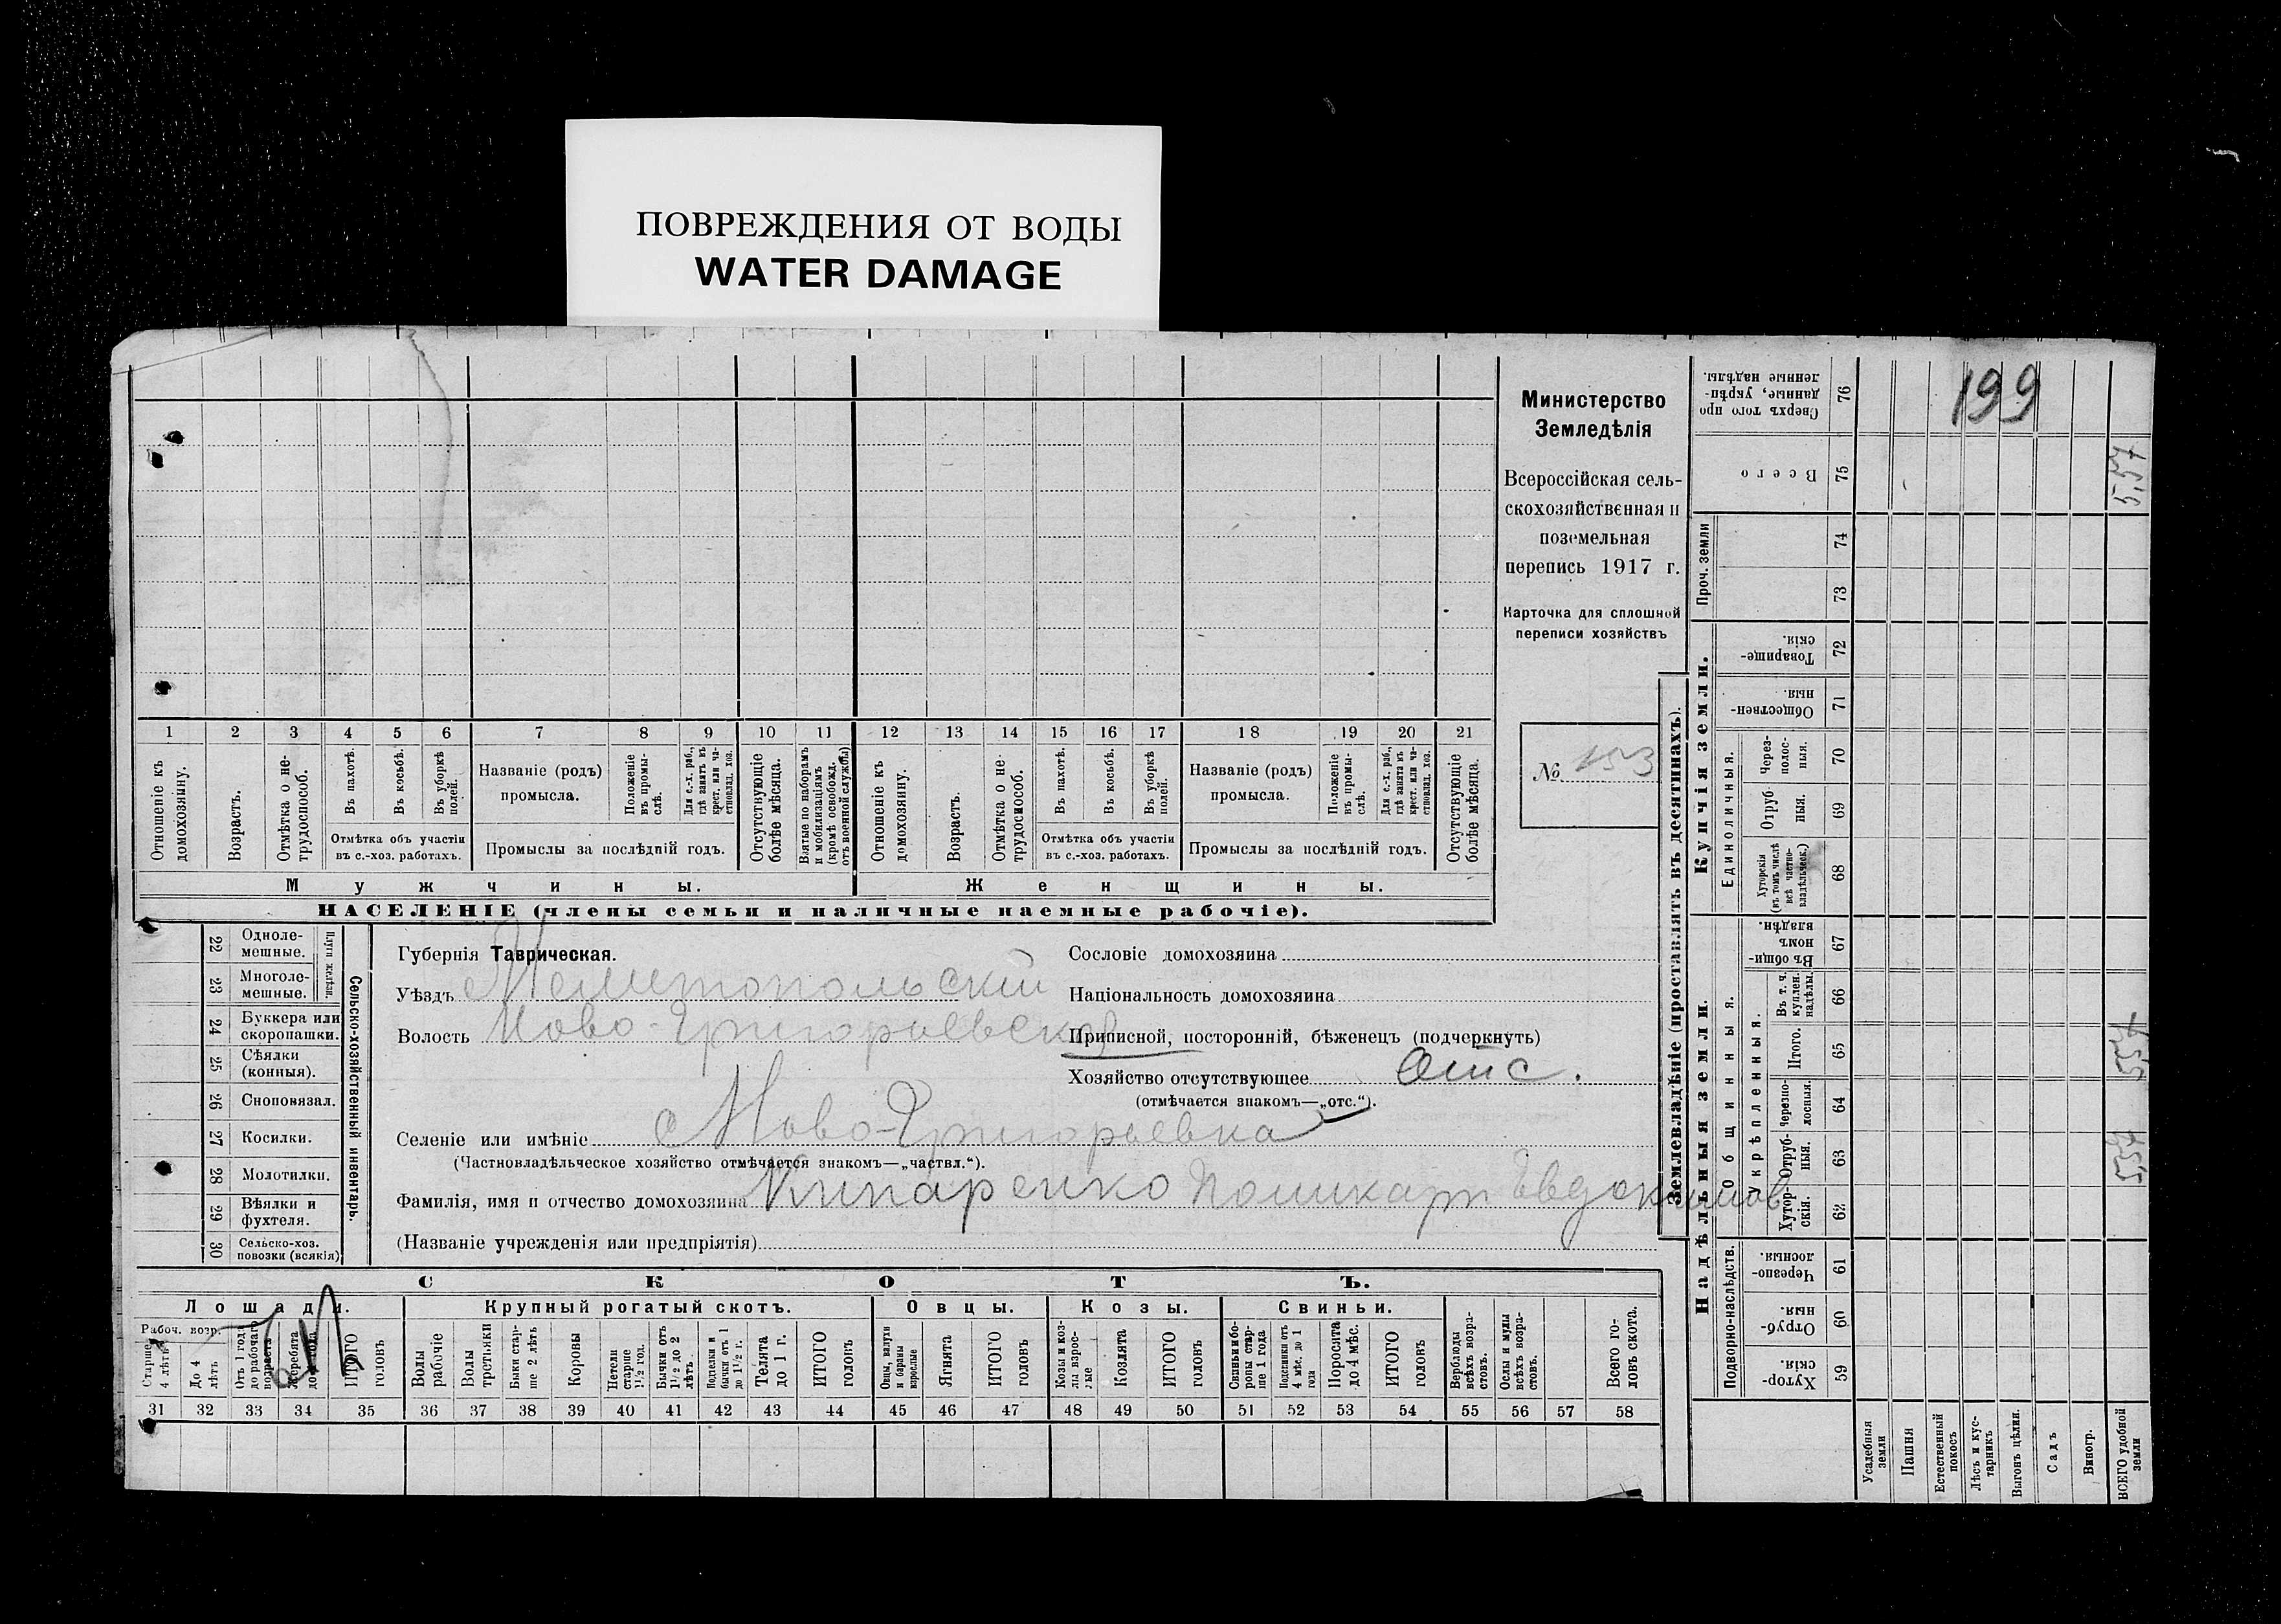 ПОВРЕЖДЕНИЯ ОТ ВОДЫ
WATER DAMAGE
Министерство
Земледѣлія
Всероссійская сель-
скохозяйственная и
поземельная
перепись 1917 г.
Карточка для сплошной
переписи хозяйствъ
№ 153
199
1 2 3 4 5 6 7 8 9 10 11 12 13 14 15 16 17 18 19 20 21
Отношеніе къ домохозяину.
Возрастъ.
Отмѣтка о не-трудоспособ.
Въ пахотѣ.
Въ косьбѣ.
Въ уборкѣ полей.
Отмѣтка объ участіи
въ с.-хоз. работахъ.
Названіе (родъ)
промысла.
Положеніе въ промы-слѣ.
Для с.-х. раб., гдѣ занятъ въ крест. или ча-стновлад. хоз.
Промыслы за послѣдній годъ.
Отсутствующіе болѣе мѣсяца.
Взятые по наборамъ и мобилизаціямъ (кромѣ освобожд. отъ военной службы)
Отношеніе къ домохозяину.
Возрастъ.
Отмѣтка о не-трудоспособ.
Въ пахотѣ.
Въ косьбѣ.
Въ уборкѣ полей.
Отмѣтка объ участіи
въ с.-хоз. работахъ.
Названіе (родъ)
промысла.
Положеніе въ промы-слѣ.
Для с.-х. раб., гдѣ занята въ крест. или ча-стновлад. хоз.
Промыслы за послѣдній годъ.
Отсутствующіе болѣе мѣсяца.
Мужчины.
Женщины.
НАСЕЛЕНІЕ (члены семьи и наличные наемные рабочіе).
22 Одноле-мешные.
23 Многоле-мешные.
Плуги желѣзн.
24 Буккера или скоропашки.
25 Сѣялки (конныя).
26 Сноповязал.
27 Косилки.
28 Молотилки.
29 Вѣялки и фухтеля.
30 Сельско-хоз. повозки (всякія)
Сельско-хозяйственный инвентарь.
Губернія Таврическая.
Уѣздъ Мелитопольскій
Волость Ново-Григорьевская
Селеніе или имѣніе с Ново-Григорьевка
(Частновладѣльческое хозяйство отмѣчается знакомъ—„частвл.“).
Фамилія, имя и отчество домохозяина Кипаренко Поликарп Евдокимов
(Названіе учрежденія или предпріятія)
Сословіе домохозяина
Національность домохозяина
Приписной, посторонній, бѣженецъ (подчеркнуть)
Хозяйство отсутствующее Отс.
(отмѣчается знакомъ—„отс.“).
СКОТЪ.
Лошади.
Крупный рогатый скотъ.
Овцы.
Козы.
Свиньи.
Рабоч. возр.
Старше 4 лѣтъ
До 4 лѣтъ
Отъ 1 года до рабочаго возраста
Жеребята до 1 года
ИТОГО головъ
Волы рабочіе
Волы третьяки
Быки стар-ше 2 лѣтъ
Коровы
Нетели старше 1½ год.
Бычки отъ 1½ до 2 лѣтъ
Подтелки и бычки отъ 1 до 1½ г.
Телята до 1 г.
ИТОГО головъ
Овцы, валухи и бараны взрослые
Ягнята
ИТОГО головъ
Козы и коз-лы взрос-лые
Козлята
ИТОГО головъ
Свиньи и бо-ровы стар-ше 1 года
Подсвинки отъ 4 мѣс. до 1 года
Поросята до 4 мѣс.
ИТОГО головъ
Верблюды всѣхъ возра-стовъ.
Ослы и мулы всѣхъ возра-стовъ.
Всего го-ловъ скота.
31 32 33 34 35 36 37 38 39 40 41 42 43 44 45 46 47 48 49 50 51 52 53 54 55 56 57 58
Землевладѣніе (проставлять въ десятинахъ).
Купчія земли.
Надѣльныя земли.
Сверхъ того про данные, укрѣп-ленные надѣлы. 76
Всего 75 5,57
Проч. земли 74 73
Товарище-скія. 72
Обществен-ныя. 71
Единоличныя.
Через-полос-ныя. 70
Отруб ныя. 69
Хуторскія (въ томъ числѣ всѣ частно-владѣльческ.) 68
Общинныя.
Въ общи-номъ владѣн. 67
Укрѣпленныя.
Въ т. ч. куплен. надѣлы. 66
Итого. 65 5,57
Черезпо-лосныя. 64
Отруб-ныя. 63 5,57
Хутор-скія. 62
Подворно-наслѣдств.
Черезпо-лосныя. 61
Отруб-ныя. 60
Хутор-скія. 59
Усадебныя земли
Пашня
Естественный покосъ
Лѣсъ и кус-тарникъ
Выгонъ цѣлин.
Садъ
Виногр.
ВСЕГО удобной земли